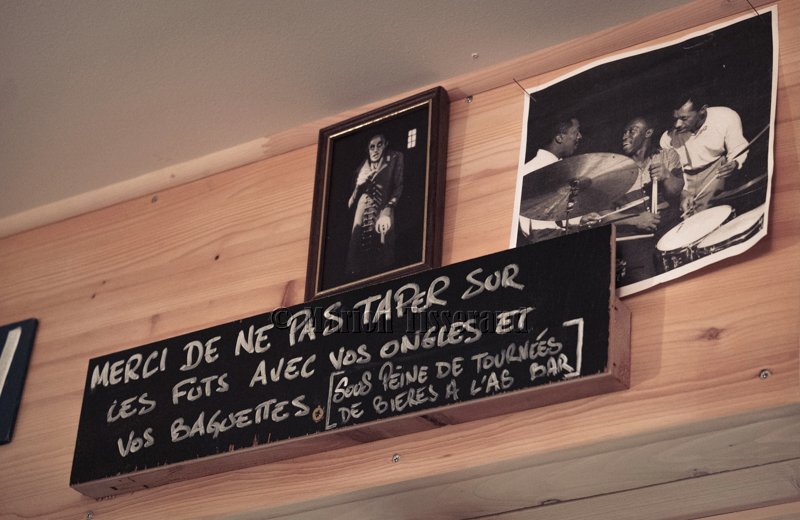 MERCI DE NE PAS TAPER SUR
LES FUTS AVEC VOS ONGLES ET
VOS BAGUETTES. [SOUS PEINE DE TOURNÉES
DE BIERES A L'AG BAR]
© Marion Tisserand